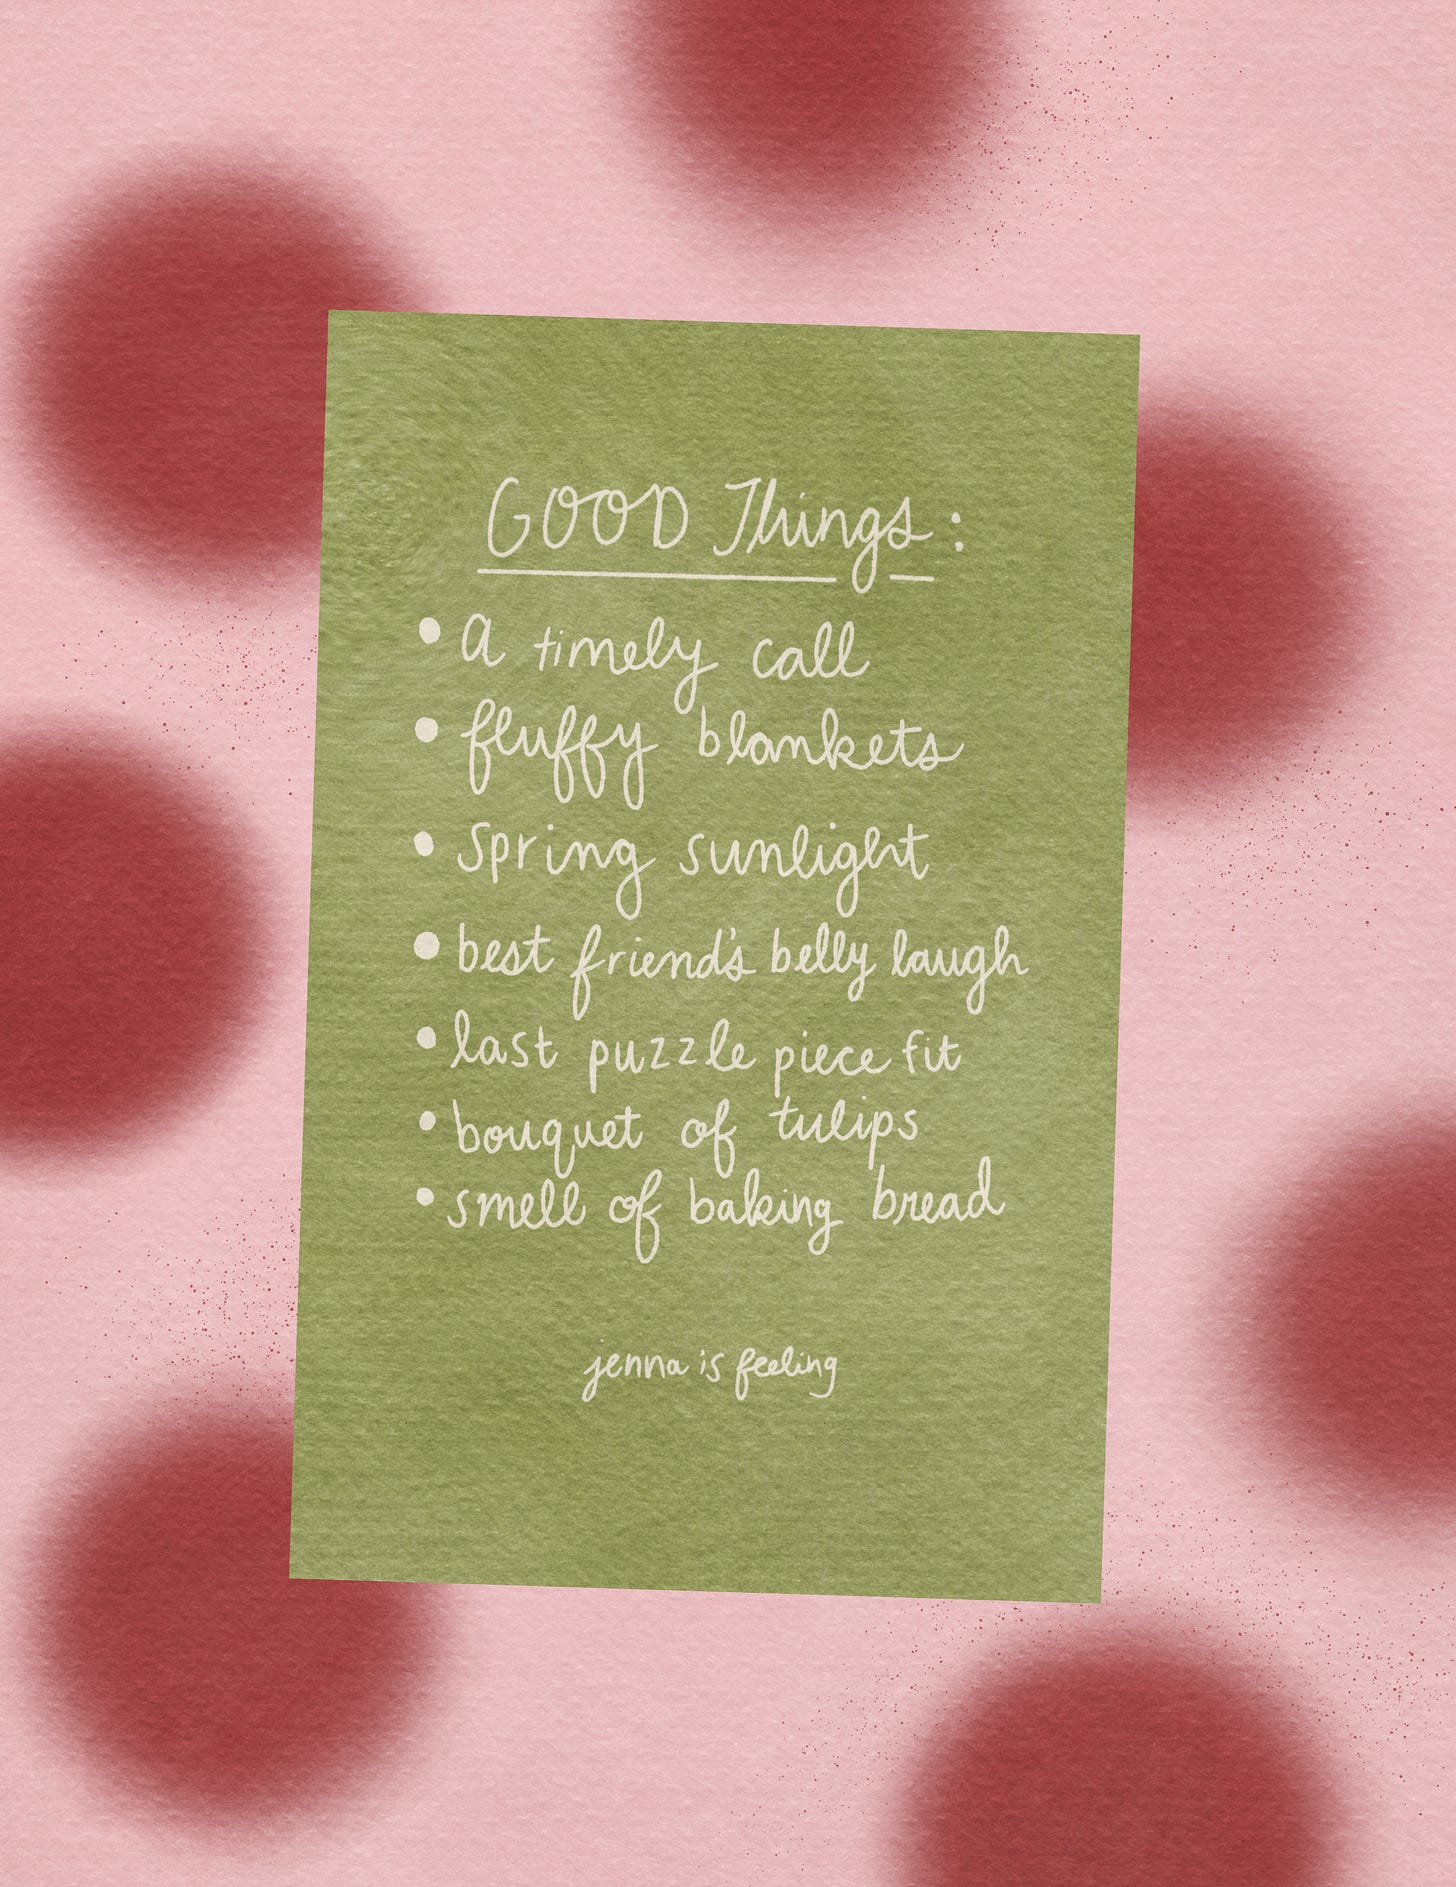 GOOD Things:
• a timely call
• fluffy blankets
• spring sunlight
• best friend's belly laugh
• last puzzle piece fit
• bouquet of tulips
• smell of baking bread
jenna is feeling